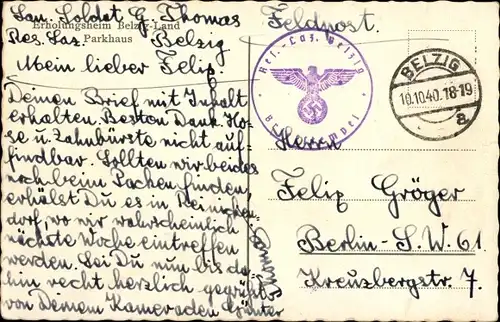 San. Soldat G. Thomas
Feldpost.
Erholungsheim Belzig-Land
Res. Laz. Parkhaus Belzig
Mein lieber Felix!
Deinen Brief mit Inhalt
erhalten. Besten Dank. Ho-
se u. Zahnbürste nicht auf-
findbar. Sollten wir beides
noch beim Packen finden,
erhälst Du es in Reinicken-
dorf, wo wir wahrscheinlich
nächste Woche eintreffen
werden. Sei Du nun bis da-
hin recht herzlich gegrüßt
von Deinem Kameraden Günter
Thomas
Res.-Laz. Belzig
Briefstempel
BELZIG
10.10.40.18-19
a
Herrn
Felix Gröger
Berlin-S.W.61
Kreuzbergstr. 7.